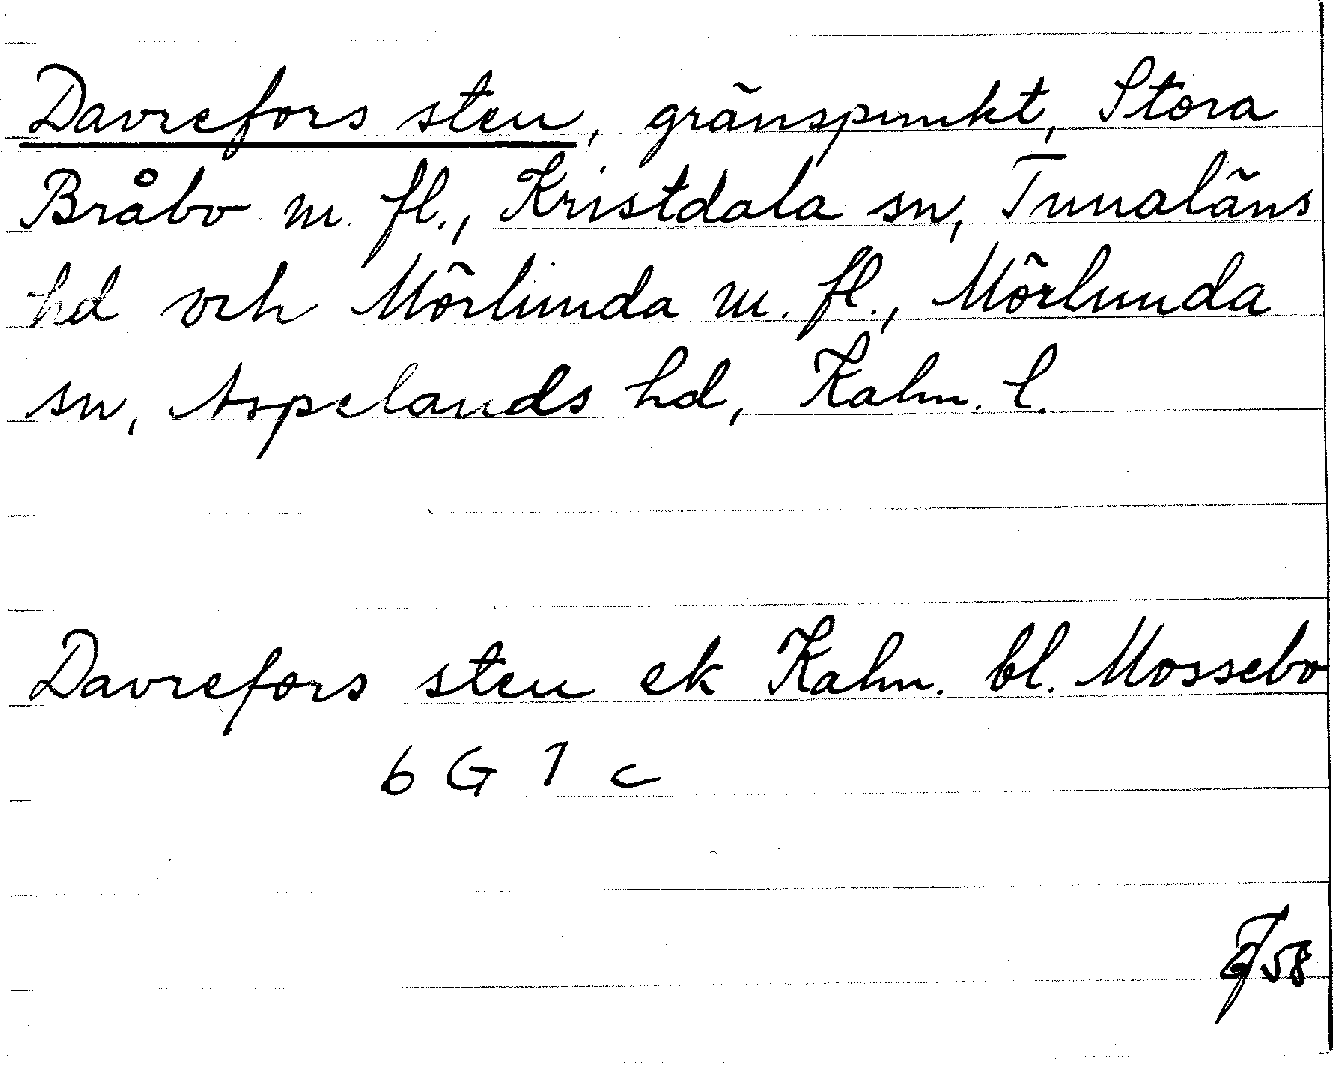 Davrefors sten, gränspunkt, Stora
Bråbo m. fl., Kristdala sn, Tunaläns
hd och Mörlunda m. fl., Mörlunda
sn, Aspelands hd, Kalm. l.
Davrefors sten ek Kalm. bl. Mossebo
6 G 1 c
58